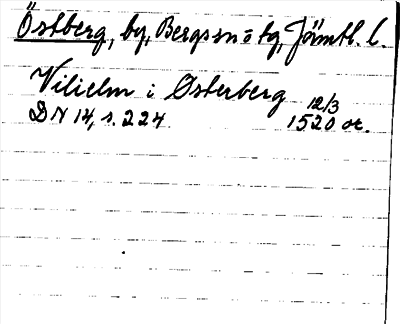 Östberg, by, Bergs sn o tg, Jämtl. l.
Vilielm i Østerberg 12/3
DN 14, s. 224 1520 or.